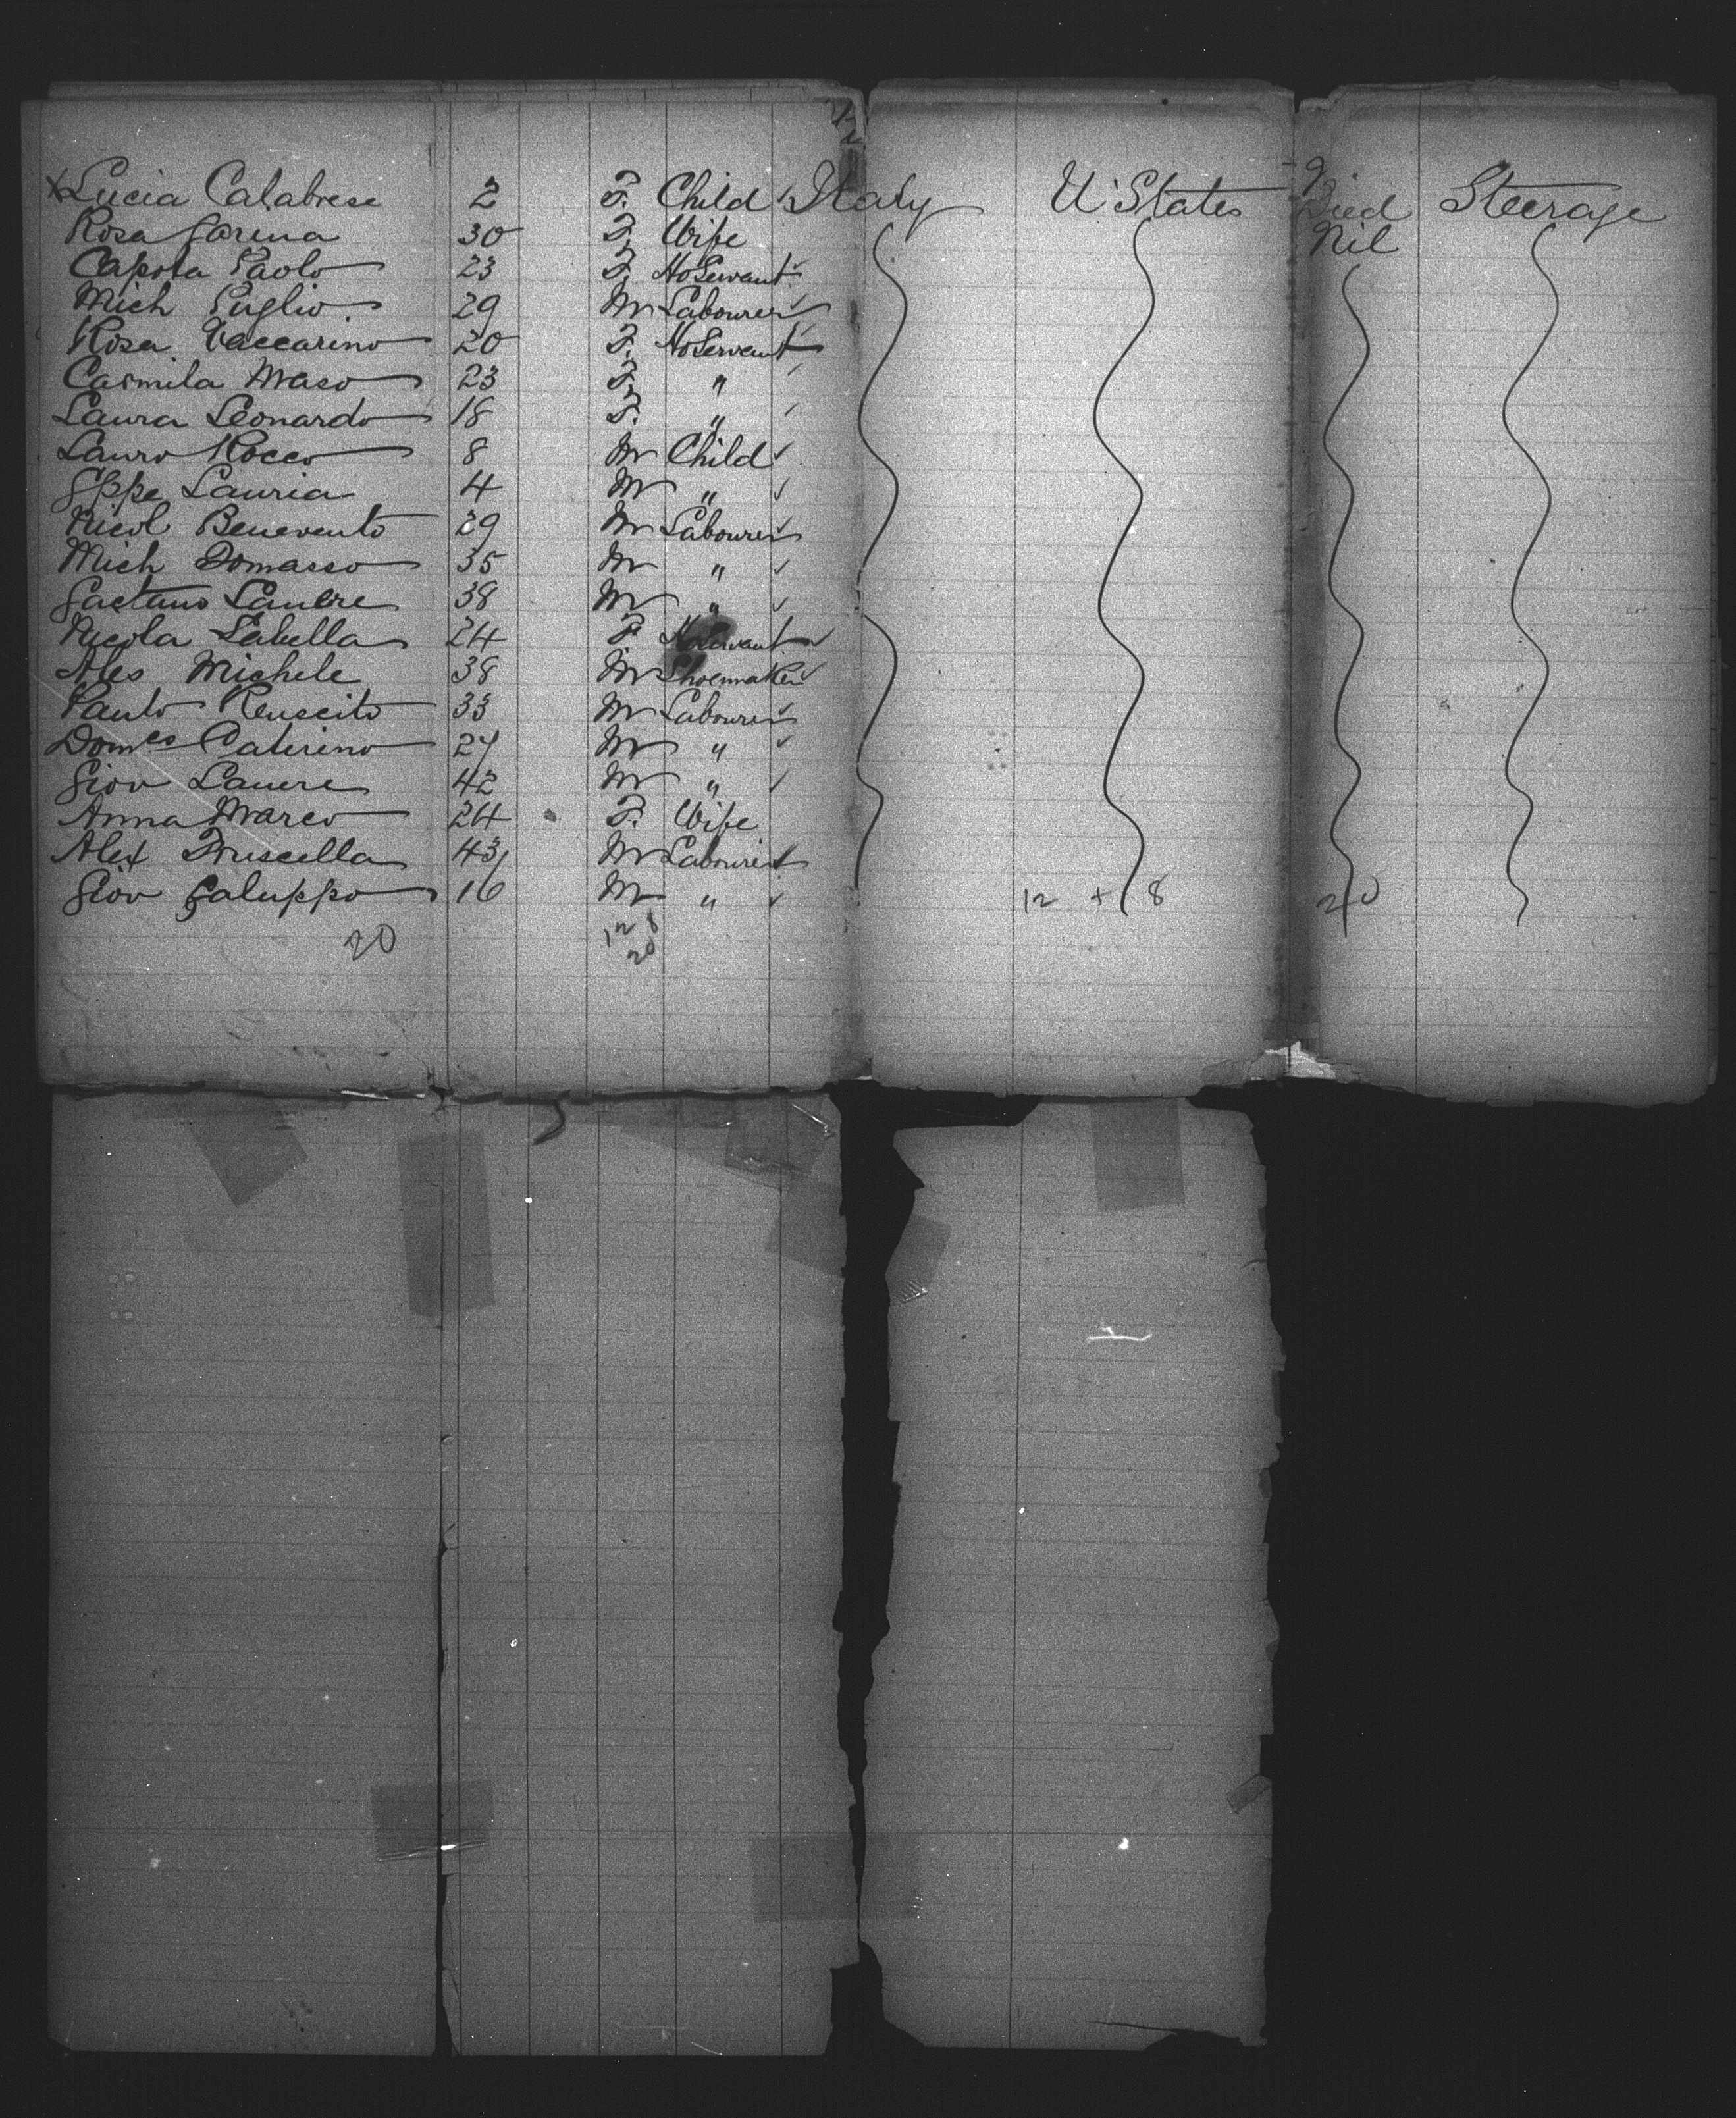 x Lucia Calabrese 2 F. Child Italy U States Died Steerage
Rosa Farina 30 F. Wife Nil
Capota Paolo 23 F. HoServant
Mich Puglio 29 M Labourer
Rosa Vaccarino 20 F. HoServant
Carmila Maso 23 F. "
Laura Leonardo 18 F. "
Lauro Rocco 8 M Child
Gppe Lauria 4 M "
Nicol Benevento 29 M Labourer
Mich Tomasso 35 M "
Gaetano 38 M "
Nicola Labella 24 F. HoServant
Ales Michele 38 M Shoemaker
33 M Labourer
Domco Caterino 27 M "
Giov 42 M "
Anna Marco 24 F. Wife
Alex Truscella 43 M Labourer
Giov Galuppo 16 M " 12 + 8 20
20 12 8
20